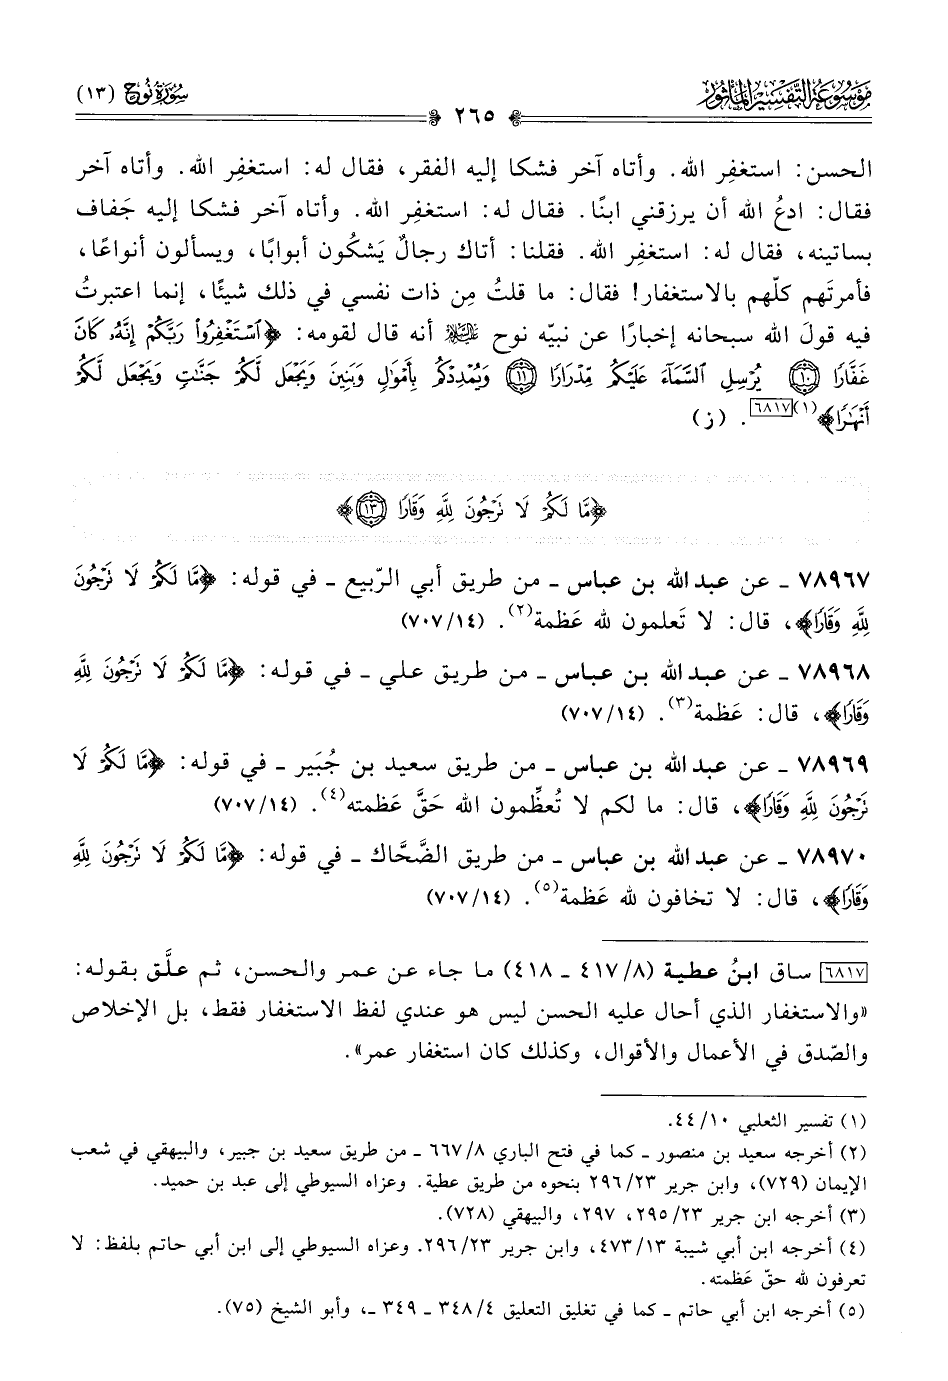 موسوعة التفسير المأثور
سورة نوح (١٣)
٢٦٥
الحسن: استغفِر الله. وأتاه آخر فشكا إليه الفقر، فقال له: استغفِر الله. وأتاه آخر
فقال: ادعُ الله أن يرزقني ابنًا. فقال له: استغفِر الله. وأتاه آخر فشكا إليه جَفاف
بساتينه، فقال له: استغفِر الله. فقلنا: أتاك رجالٌ يَشكُون أبوابًا، ويسألون أنواعًا،
فأمرتَهم كلّهم بالاستغفار! فقال: ما قلتُ مِن ذات نفسي في ذلك شيئًا، إنما اعتبرتُ
فيه قولَ الله سبحانه إخبارًا عن نبيّه نوح عليه السلام أنه قال لقومه: ﴿ٱسۡتَغۡفِرُواْ رَبَّكُمۡ إِنَّهُۥ كَانَ
غَفَّارٗا ۝١٠ يُرۡسِلِ ٱلسَّمَآءَ عَلَيۡكُم مِّدۡرَارٗا ۝١١ وَيُمۡدِدۡكُم بِأَمۡوَٰلٖ وَبَنِينَ وَيَجۡعَل لَّكُمۡ جَنَّٰتٖ وَيَجۡعَل لَّكُمۡ
أَنۡهَٰرٗا﴾(١)[٦٨١٧]. (ز)
﴿مَّا لَكُمۡ لَا تَرۡجُونَ لِلَّهِ وَقَارٗا ۝١٣﴾
٧٨٩٦٧ ـ عن عبد الله بن عباس ـ من طريق أبي الرّبيع ـ في قوله: ﴿مَّا لَكُمۡ لَا تَرۡجُونَ
لِلَّهِ وَقَارٗا﴾، قال: لا تَعلمون لله عَظمة(٢). (٧٠٧/١٤)
٧٨٩٦٨ ـ عن عبد الله بن عباس ـ من طريق علي ـ في قوله: ﴿مَّا لَكُمۡ لَا تَرۡجُونَ لِلَّهِ
وَقَارٗا﴾، قال: عَظمة(٣). (٧٠٧/١٤)
٧٨٩٦٩ ـ عن عبد الله بن عباس ـ من طريق سعيد بن جُبَير ـ في قوله: ﴿مَّا لَكُمۡ لَا
تَرۡجُونَ لِلَّهِ وَقَارٗا﴾، قال: ما لكم لا تُعظِّمون الله حَقَّ عَظمته(٤). (٧٠٧/١٤)
٧٨٩٧٠ ـ عن عبد الله بن عباس ـ من طريق الضَّحَّاك ـ في قوله: ﴿مَّا لَكُمۡ لَا تَرۡجُونَ لِلَّهِ
وَقَارٗا﴾، قال: لا تخافون لله عَظمة(٥). (٧٠٧/١٤)
[٦٨١٧] ساق ابنُ عطية (٤١٧/٨ ـ ٤١٨) ما جاء عن عمر والحسن، ثم علَّق بقوله:
«والاستغفار الذي أحال عليه الحسن ليس هو عندي لفظ الاستغفار فقط، بل الإخلاص
والصّدق في الأعمال والأقوال، وكذلك كان استغفار عمر».
(١) تفسير الثعلبي ٤٤/١٠.
(٢) أخرجه سعيد بن منصور ـ كما في فتح الباري ٦٦٧/٨ ـ من طريق سعيد بن جبير، والبيهقي في شعب
الإيمان (٧٢٩)، وابن جرير ٢٩٦/٢٣ بنحوه من طريق عطية. وعزاه السيوطي إلى عبد بن حميد.
(٣) أخرجه ابن جرير ٢٩٥/٢٣، ٢٩٧، والبيهقي (٧٢٨).
(٤) أخرجه ابن أبي شيبة ٤٧٣/١٣، وابن جرير ٢٩٦/٢٣. وعزاه السيوطي إلى ابن أبي حاتم بلفظ: لا
تعرفون لله حقّ عَظمته.
(٥) أخرجه ابن أبي حاتم ـ كما في تغليق التعليق ٣٤٨/٤ ـ ٣٤٩ ـ، وأبو الشيخ (٧٥).